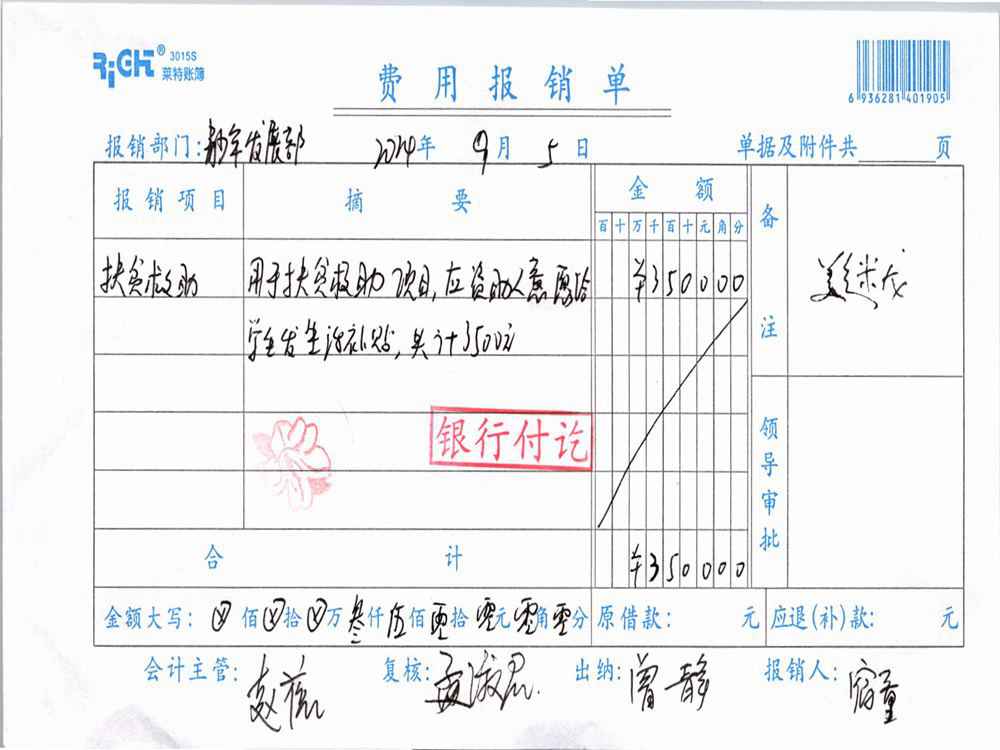 RiGHT® 3015S
莱特账簿
费用报销单
6 936281 401905
报销部门: 青少年发展部 2024年 9月 5日 单据及附件共 页
报销项目 摘要 金额 备注
百十万千百十元角分
扶贫救助 用于扶贫救助项目,应资助人意愿给 ¥350000
学生发生活补贴,共计3500元
银行付讫
领导审批
合计 ¥350000
金额大写: ⊗佰⊗拾⊗万叁仟伍佰零拾零元零角零分 原借款: 元 应退(补)款: 元
会计主管: 赵 复核: 孟淑君 出纳: 曾静 报销人: 容童